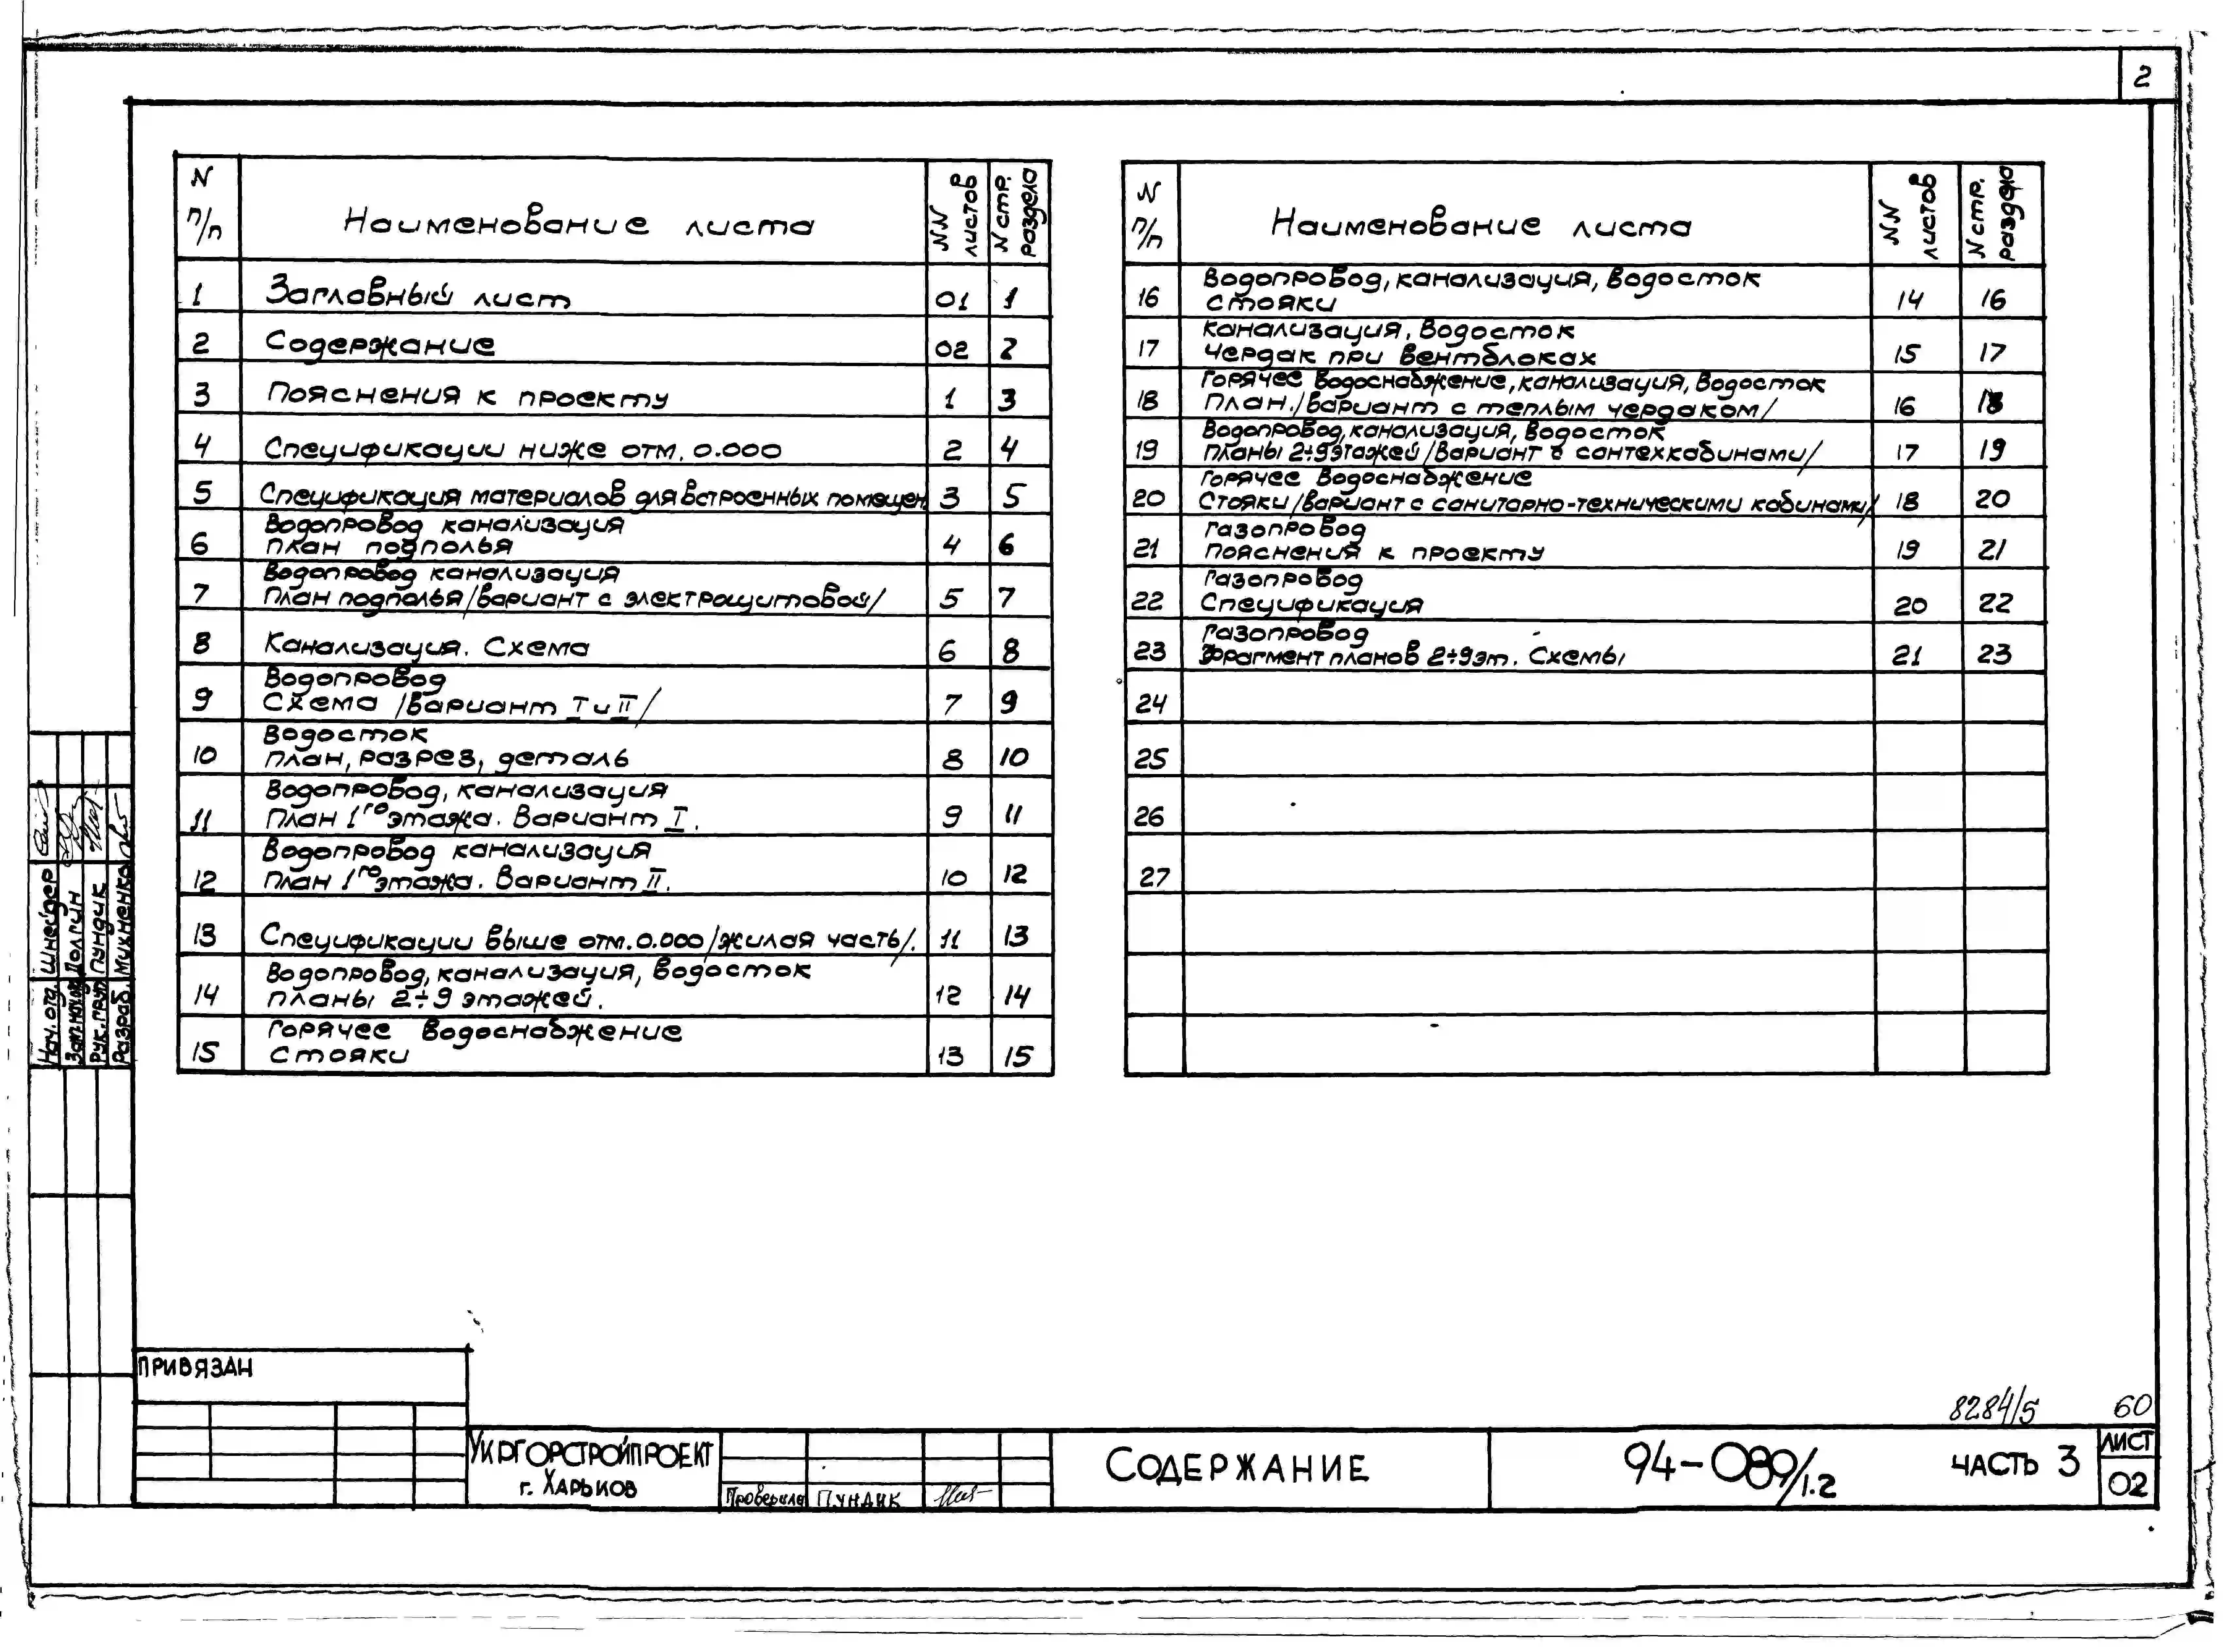 2
N п/п Наименование листа NN листов N стр. раздела
1 Заглавный лист 01 1
2 Содержание 02 2
3 Пояснения к проекту 1 3
4 Спецификации ниже отм. 0.000 2 4
5 Спецификация материалов для встроенных помещен. 3 5
Водопровод канализация
6 план подполья 4 6
Водопровод канализация
7 План подполья /вариант с электрощитовой/ 5 7
8 Канализация. Схема 6 8
Водопровод
9 Схема /вариант I и II/ 7 9
Водосток
10 план, разрез, деталь 8 10
Водопровод, канализация
11 План 1го этажа. Вариант I. 9 11
Водопровод канализация
12 План 1го этажа. Вариант II. 10 12
13 Спецификации выше отм. 0.000 /жилая часть/. 11 13
Водопровод, канализация, водосток
14 планы 2÷9 этажей. 12 14
Горячее водоснабжение
15 стояки 13 15
N п/п Наименование листа NN листов N стр. раздела
Водопровод, канализация, водосток
16 стояки 14 16
Канализация, водосток
17 чердак при вентблоках 15 17
Горячее водоснабжение, канализация, водосток
18 План. /вариант с теплым чердаком/ 16 18
Водопровод, канализация, водосток
19 планы 2÷9 этажей /вариант с сантехкабинами/ 17 19
Горячее водоснабжение
20 Стояки /вариант с санитарно-техническими кабинами/ 18 20
Газопровод
21 пояснения к проекту 19 21
Газопровод
22 Спецификация 20 22
Газопровод
23 Фрагмент планов 2÷9 эт. Схемы 21 23
24
25
26
27
Нач. отд. Шнейдер
Зам. нач. отд. Долгин
Рук. груп. Пундик
Разраб. Михненко
Привязан
8284/5 60
Укргорстройпроект
г. Харьков
Проверила Пундик
Содержание
94-089/1.2
часть 3
лист
02